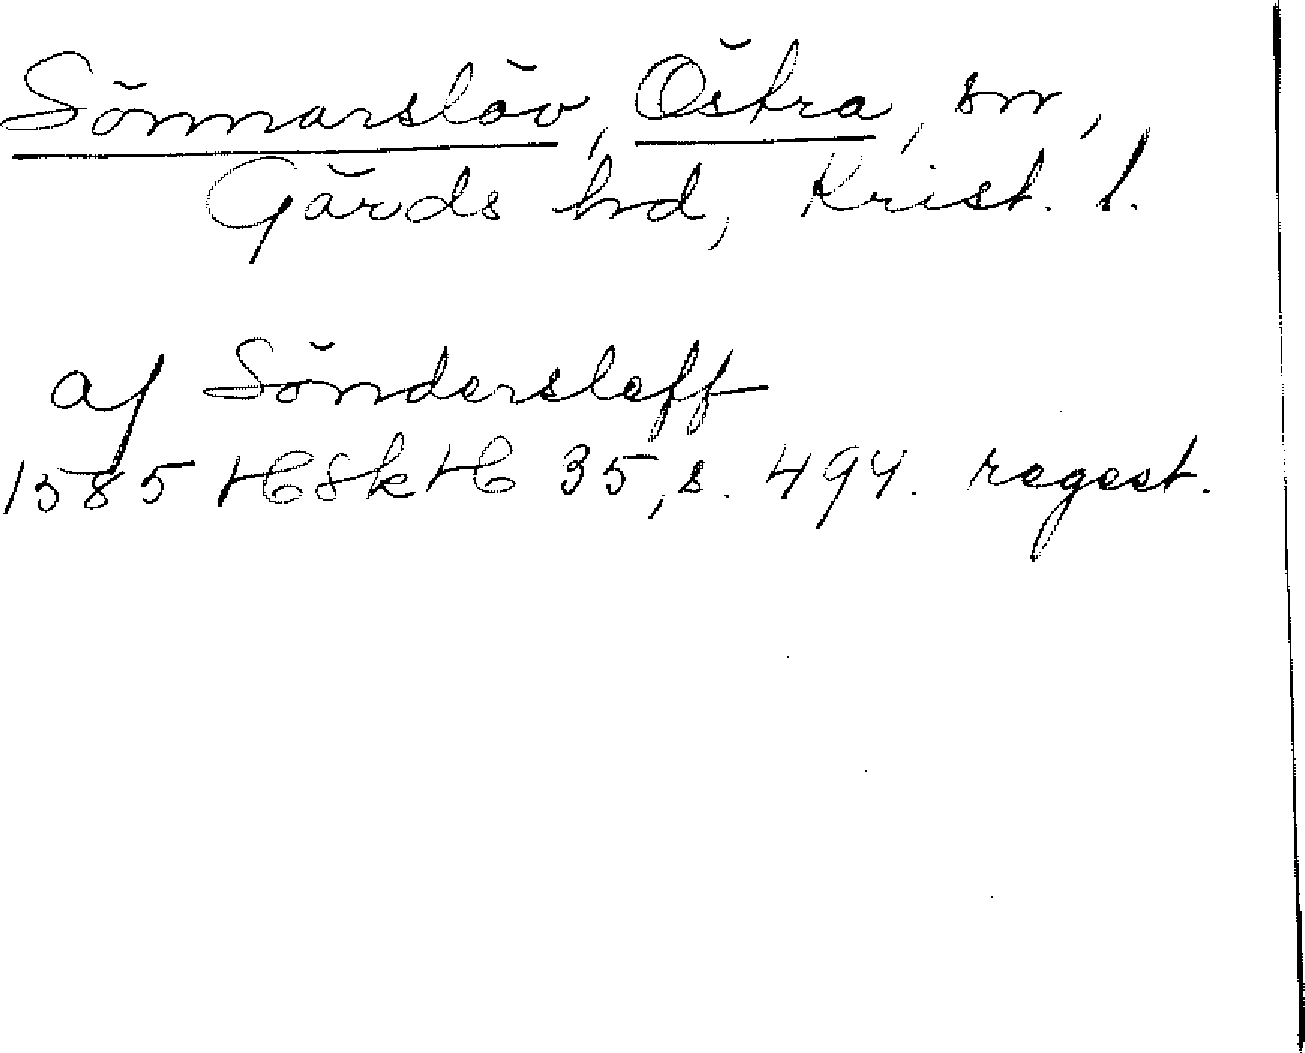 Sönnarslöv, Östra, sn,
Gärds hd, Krist. l.
af Söndersleff
1585 HHSkHH 35, s. 494. regest.